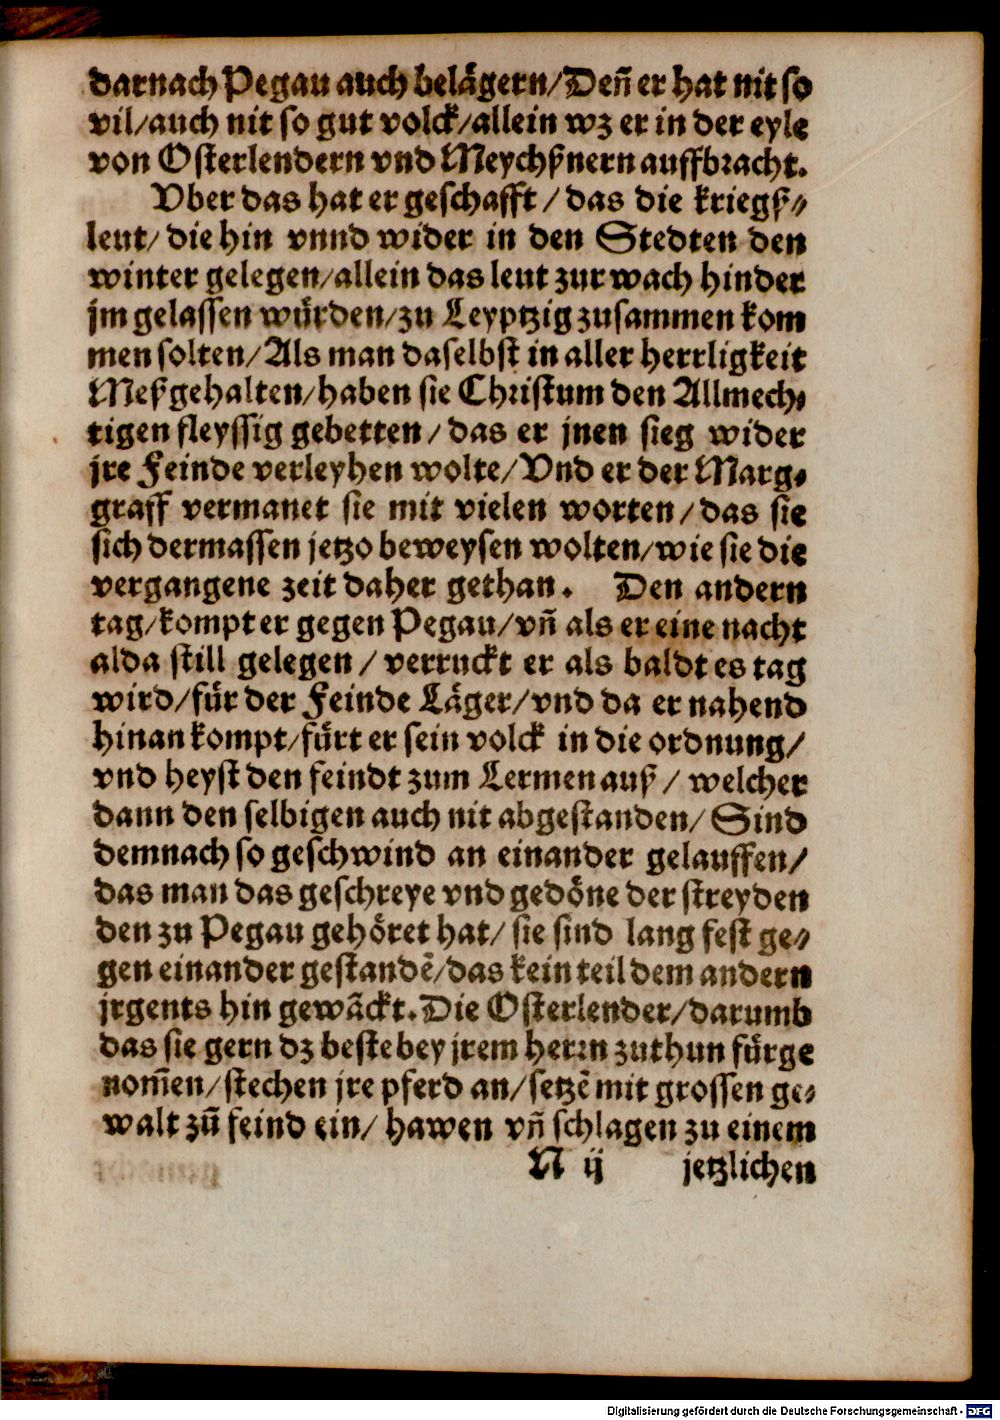 darnach Pegau auch belägern/Deñ er hat nit so
vil/auch nit so gut volck/allein wz er in der eyle
von Osterlendern vnd Meychßnern auffbracht.
Vber das hat er geschafft / das die kriegß⸗
leut/ die hin vnnd wider in den Stedten den
winter gelegen/allein das leut zur wach hinder
jm gelassen würden/zu Leyptzig zusammen kom
men solten/Als man daselbst in aller herrligkeit
Meß gehalten/haben sie Christum den Allmech⸗
tigen fleyssig gebetten/das er jnen sieg wider
jre Feinde verleyhen wolte/Vnd er der Marg⸗
graff vermanet sie mit vielen worten/das sie
sich dermassen jetzo beweysen wolten/wie sie die
vergangene zeit daher gethan. Den andern
tag/kompt er gegen Pegau/vñ als er eine nacht
alda still gelegen / verruckt er als baldt es tag
wird/für der Feinde Läger/vnd da er nahend
hinan kompt/fürt er sein volck in die ordnung/
vnd heyst den feindt zum Lermen auß / welcher
dann den selbigen auch nit abgestanden/ Sind
demnach so geschwind an einander gelauffen/
das man das geschreye vnd gedöne der streyden
den zu Pegau gehöret hat/ sie sind lang fest ge⸗
gen einander gestandẽ/das kein teil dem andern
jrgents hin gewãckt. Die Osterlender/darumb
das sie gern dz beste bey jrem herrn zuthun fürge
nom̃en/stechen jre pferd an/setzẽ mit grossen ge⸗
walt zũ feind ein/ hawen vñ schlagen zu einem
N ij jetzlichen
Digitalisierung gefördert durch die Deutsche Forschungsgemeinschaft - DFG